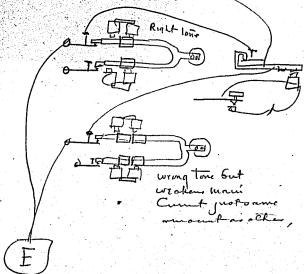 Right tone
wrong tone but
weakens main
Current just same
amount as other,
E